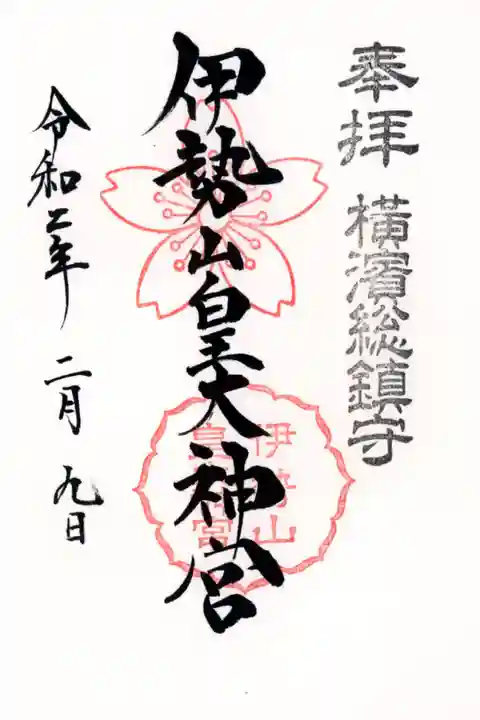 奉拝 横濱総鎮守
伊勢山皇大神宮
伊勢山
皇大神宮
令和二年 二月 九日